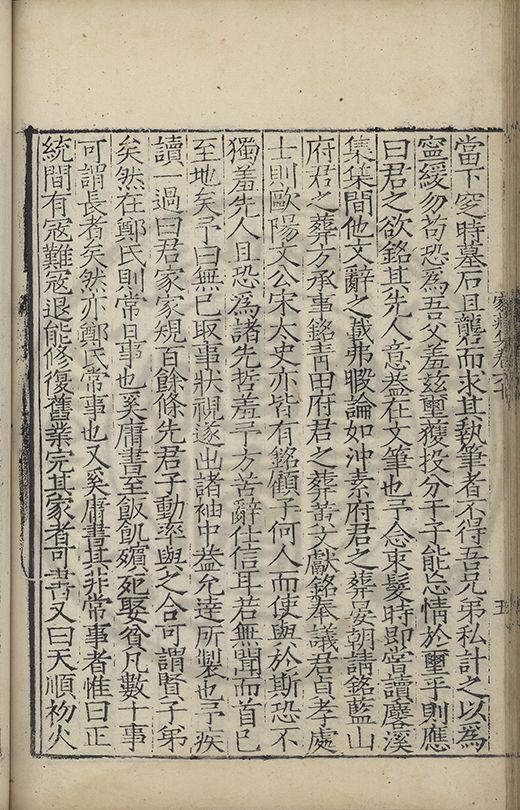 當下窆時墓石且礱而求其執筆者不得吾兄弟私計之以為
寧緩勿苟恐為吾父羞茲璽獲投分于子能忘情於璽乎則應
曰君之欲銘其先人意葢在文筆也予念束髮時即嘗讀麐溪
集集間他文辭之載弗暇論如沖素府君之葬晏朝請銘藍山
府君之葬方承事銘青田府君之葬黄文獻銘奉議君貞孝處
士則歐陽文公宋太史亦皆有銘顧予何人而使與於斯恐不
獨羞先人且恐為諸先哲羞予方苦辭仕信耳若無聞而首已
至地矣予曰無已取事狀視遂出諸袖中葢允達所製也予疾
讀一過曰君家家規百餘條先君子動率與之合可謂賢子弟
矣然在鄭氏則常日事也奚庸書至飯飢殯死娶貧凡數十事
可謂長者矣然亦鄭氏常事也又奚庸書其非常事者惟曰正
統間有寇難寇退能修復舊業完其家者可書又曰天順初火
五